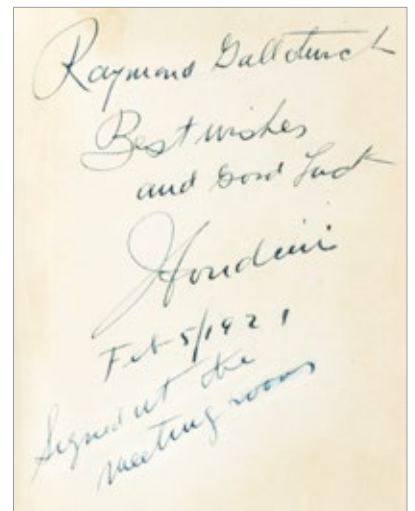 Raymond
Best wishes
and good luck
Houdini
Feb 5/1921
Signed at the
meeting rooms